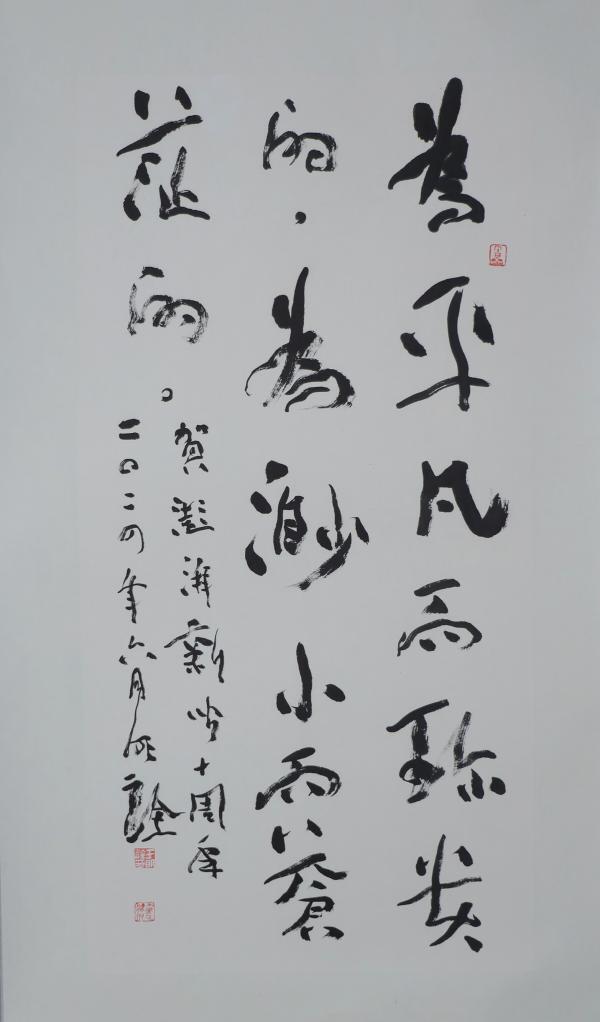 為平凡而珍貴
的，為渺小而蒼
茫的。
賀澎湃新聞十周年
二〇二四年六月